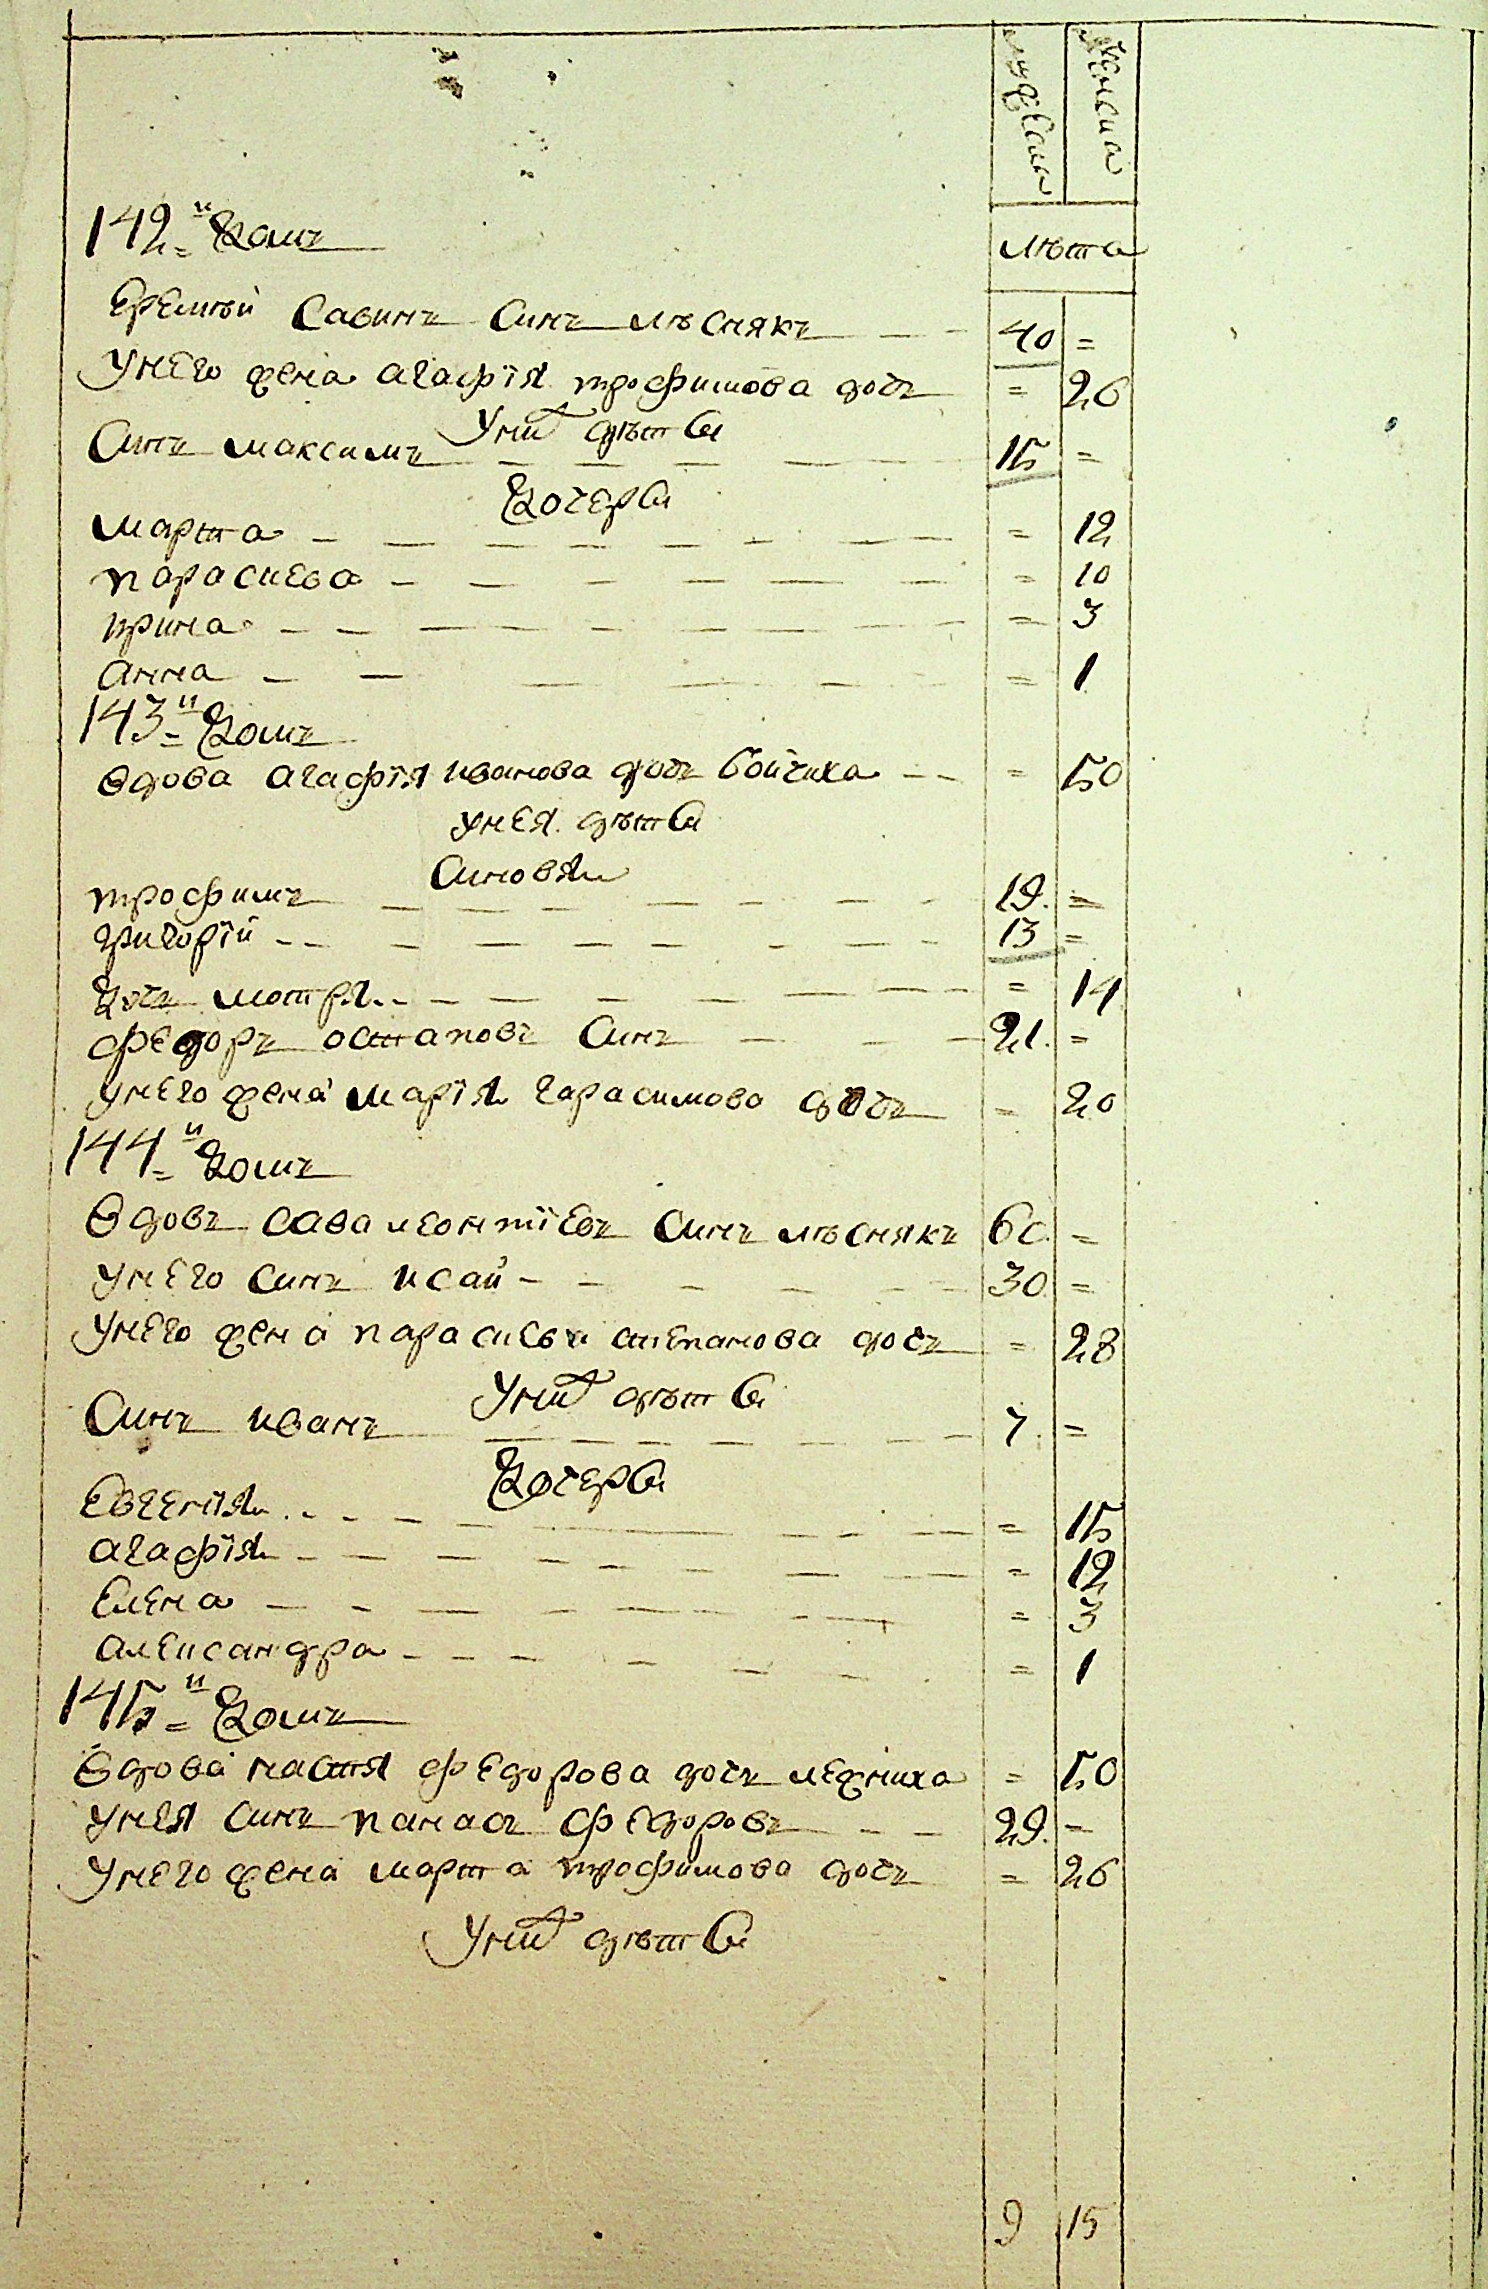 мужеска женска
142-й Домъ лѣта
Еремѣй Савинъ Синъ лѣснякъ — — 40 =
Унего жена агафїя трофимова дочь = 26
Уних дѣти
Синъ максимъ — — — — — 15 =
Дочери
марта — — — — — — — — = 12
параскева — — — — — — — = 10
ирина — — — — — — — — = 3
анна — — — — — — — = 1
143-й Домъ
Вдова агафїя иванова дочь бойчиха — — = 50
унея дѣти
Синовя
трофимъ — — — — — — — — 19. =
григорїй — — — — — — — — 13 =
Дочь мотря — — — — — — — = 14
федоръ остаповъ Синъ — — — 21. =
унего жена марїя гарасимова дочь = 20
144-й Домъ
Вдовъ сава леонтїевъ Синъ лѣснякъ 60 =
унего синъ исай — — — — — — 30 =
Унего жена параскевы степанова дочь = 28
Уних дѣти
Синъ иванъ — — — — — — — 7. =
Дочери
Евгенїя — — — — — — — — = 15
агафїя — — — — — — — — = 12
Елена — — — — — — — — = 3
александра — — — — — — = 1
145-й Домъ
Вдова настя федорова дочь лежниха = 50
унея синъ панасъ федоровъ — — 29. =
Унего жена марта трофимова дочь = 26
Уних дѣти
9 15